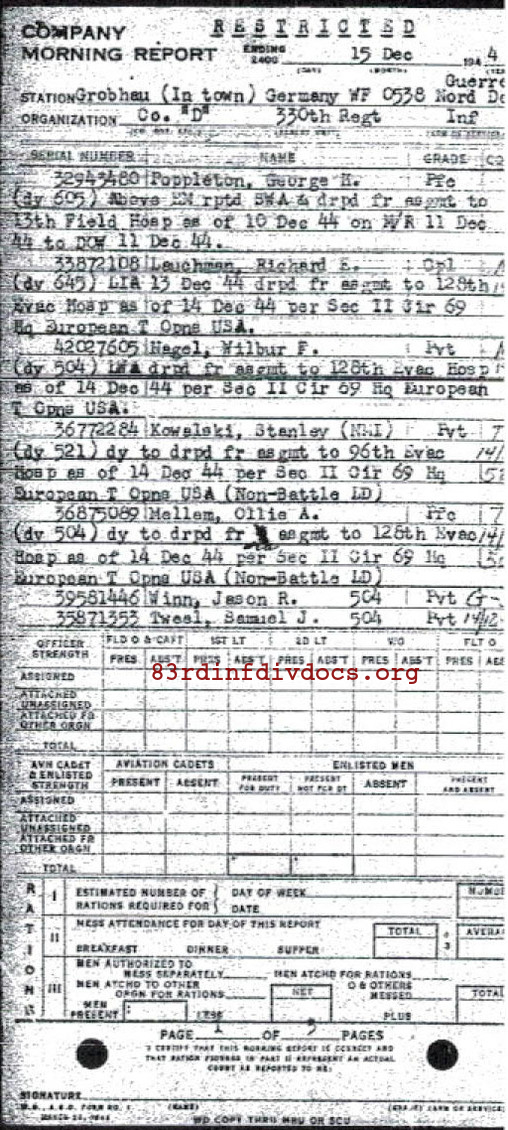 RESTRICTED
COMPANY
MORNING REPORT ENDING 2400 15 Dec 194 4
(DAY) (MONTH)
Guerre
STATION Grobhau (In town) Germany WF 0538 Nord De
ORGANIZATION Co. "D" 330th Regt Inf
SERIAL NUMBER NAME GRADE
32943480 Poppleton, George H. Pfc
(dy 605) Above EM rptd SWA & drpd fr asgmt to
13th Field Hosp as of 10 Dec 44 on M/R 11 Dec
44 to DOW 11 Dec 44.
33872108 Lauchman, Richard E. Cpl
(dy 645) LIA 13 Dec 44 drpd fr asgmt to 128th
Evac Hosp as of 14 Dec 44 per Sec II Cir 69
Hq European T Opns USA.
42027605 Nagel, Wilbur F. Pvt
(dy 504) LWA drpd fr asgmt to 128th Evac Hosp
as of 14 Dec 44 per Sec II Cir 69 Hq European
T Opns USA.
36772284 Kowalski, Stanley (NMI) Pvt 7
(dy 521) dy to drpd fr asgmt to 96th Evac
Hosp as of 14 Dec 44 per Sec II Cir 69 Hq
European T Opns USA (Non-Battle LD)
36875089 Mellem, Ollie A. Pfc 7
(dy 504) dy to drpd fr asgmt to 128th Evac
Hosp as of 14 Dec 44 per Sec II Cir 69 Hq
European T Opns USA (Non-Battle LD)
39581446 Winn, Jason R. 504 Pvt
35871353 Tweel, Samuel J. 504 Pvt
OFFICER STRENGTH FLD O & CAPT 1ST LT 2D LT W/O FLT O
PRES ABS'T PRES ABS'T PRES ABS'T PRES ABS'T PRES
83rdinfdivdocs.org
ASSIGNED
ATTACHED UNASSIGNED
ATTACHED FR OTHER ORGN
TOTAL
AVN CADET & ENLISTED STRENGTH AVIATION CADETS ENLISTED MEN
PRESENT ABSENT PRESENT FOR DUTY PRESENT NOT FOR DY ABSENT PRESENT AND ABSENT
ASSIGNED
ATTACHED UNASSIGNED
ATTACHED FR OTHER ORGN
TOTAL
RATIONS
I ESTIMATED NUMBER OF RATIONS REQUIRED FOR DAY OF WEEK DATE
II MESS ATTENDANCE FOR DAY OF THIS REPORT TOTAL
BREAKFAST DINNER SUPPER 3
III MEN AUTHORIZED TO MESS SEPARATELY MEN ATCHD FOR RATIONS
MEN ATCHD TO OTHER ORGN FOR RATIONS NET O & OTHERS MESSED TOTAL
MEN PRESENT LESS PLUS
PAGE 1 OF 3 PAGES
I CERTIFY THAT THIS MORNING REPORT IS CORRECT AND
THAT RATION FIGURES IN PART II REPRESENT AN ACTUAL
COUNT AS REPORTED TO ME:
SIGNATURE
W.D., A.G.O. FORM NO. 1 (NAME)
WD COPY THRU MRU OR SCU